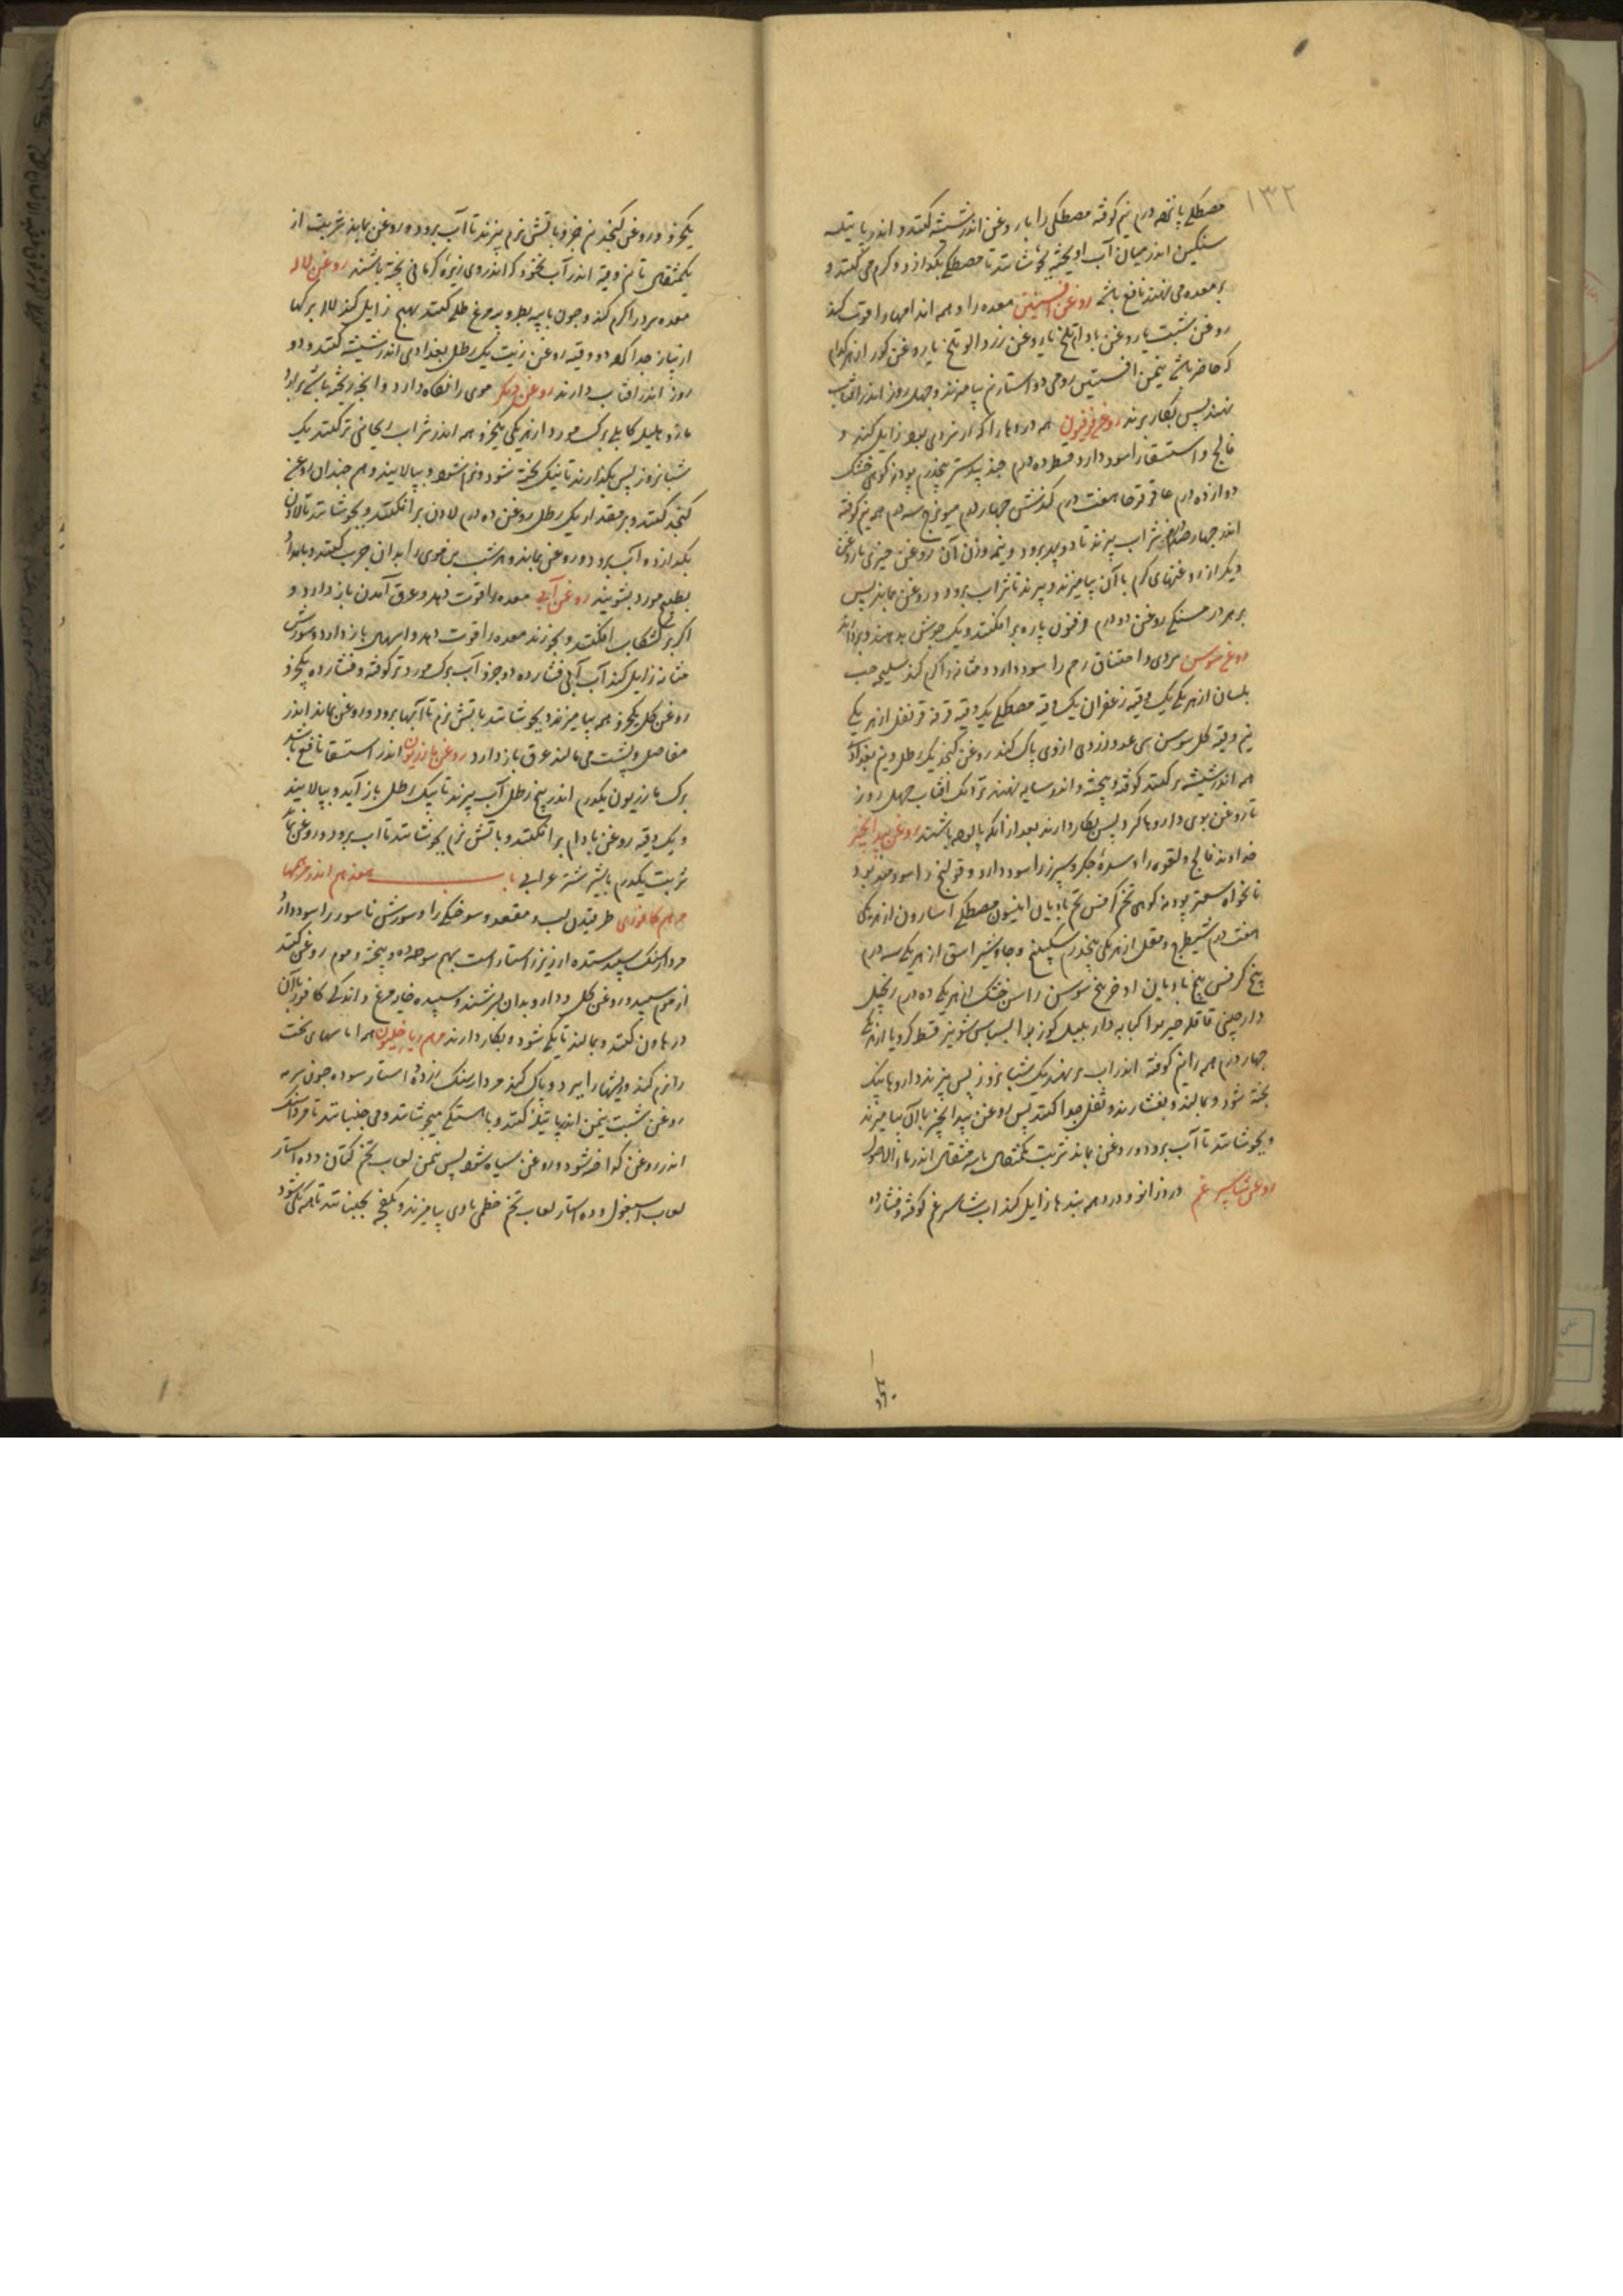 ۱۳۲
مصطکی پانزده درم نیم کوفته مصطکی را با روغن اندر شیشه کنند و اندر پاتیله
سنگین اندر میان آب اویخته بجوشانند تا مصطکی بگدازد و گرم می کنند و
بر معده می نهند نافع باشد روغن افسنتین معده را و همه اندامها را قوت کند
روغن شبت یا روغن بادام تلخ یا روغن زردالو تلخ یا روغن کوز از هر کدام
که حاضر باشد نیمن افسنتین رومی دو استار نیم بیامیزند و چهل روز اندر افتاب
نهند پس بکار برند روغن فرفیون همه دردها را که از سردی بود زایل کند و
فالج و استسقا را سود دارد قسط ده درم جندبیدستر پنجدرم پودنه کوهی خشک
دوازده درم عاقرقرحا هفت درم کندش چهار درم میویزج سه درم همه نیم کوفته
اندر چهار صد درم شراب بپزند تا دو بهر برود و نیم وزن آن روغن خیری یا روغن
دیگر از روغنهای گرم با آن بیامیزند و بپزند تا شراب برود و روغن بماند پس
بر هر ده سنگ روغن دو درم فرفیون پاره بر افکنند و یک جوش بدهند و بردارند
روغن سوسن سردی و اختناق رحم را سود دارد و مثانه را گرم کند سلیخه حب
بلسان از هر یکی یک وقیه زعفران یک وقیه مصطکی یک وقیه قرفه قرنفل از هر یکی
نیم وقیه گل سوسن سی عدد زردی ازوی پاک کنند روغن کنجد یک رطل و نیم بغدادی
همه اندر شیشه بر کنند کوفته و پخته و اندر سایه نهند نزدیک افتاب چهل روز
تا روغن بوی داروها گیرد پس بکار دارند بعد از انکه پالوده باشند روغن بید انجیر
خداوند فالج و لقوه را و سده جگر و سپرز را سود دارد و قولنج را سودمند بود
نانخواه سعتر پودنه کوهی تخم کرفس تخم بادیان انیسون مصطکی اسارون از هر یکی
هفت درم شیطرج و مقل از هر یکی پنجدرم سکبینج و جاوشیر اشق از هر یکی سه درم
بیخ کرفس بیخ بادیان اذخر بیخ سوسن راسن خشک از هر یکی ده درم زنجبیل
دارچینی قاقله خیربوا کبابه دارپلپل کوزبوا بسباسه شونیز قسط کرویا از هر یکی
چهار درم همه را نیم کوفته اندر اب بر نهند یک شبانروز پس بپزند داروها نیک
پخته شود و بمالند و بفشارند و ثفل جدا کنند پس روغن بید انجیر با آن بیامیزند
و بجوشانند تا آب برود و روغن بماند شربت یکمثقال تا سه مثقال اندر ماء الاصول
روغن شاسپرغم درد زانو و درد همه بندها زایل کند اب شاسپرغم کوفته و فشارده
یکجزو و روغن کنجد نیم جزو باتش نرم بپزند تا آب برود و روغن بماند شربت از
یکمثقال تا نیم وقیه اندر آب نخود که اندر وی زیره کرمانی پخته باشند روغن لاله
معده سرد را گرم کند و چون با پیه بط و پیه مرغ طلی کنند بهج زایل کند لاله برگها
از پیاز جدا کرده دو وقیه روغن زیت یک رطل بغدادی اندر شیشه کنند و دو
روز اندر افتاب دارند روغن دیگر موی را نگاه دارد و انچه ریخته باشد برآرد
مازو هلیله کابلی برگ مورد از هر یکی یکجزو همه اندر شراب ریحانی تر کنند یک
شبانروز پس بگذارند تا نیک پخته شود و نرم شود و بپالایند و هم چندان روغن
کنجد کنند و بر مقدار یک رطل روغن ده درم لادن بر افکنند و بجوشانند تا لادن
بگدازد و آب برود و روغن بماند و هر شب بن موی را بدان چرب کنند و بامداد
بطبیخ مورد بشویند روغن آبی معده را قوت دهد و عرق آمدن باز دارد و
اگر بر کشکاب افکنند و بخورند معده را قوت دهد و اسهال باز دارد و سوزش
مثانه زایل کند آب آبی فشارده دو جزو آب برگ مورد تر کوفته و فشارده یکجزو
روغن گل یکجزو همه بیامیزند و بجوشانند باتش نرم تا آبها برود و روغن بماند اندر
مفاصل و پشت می مالند عرق باز دارد روغن مازریون اندر استسقا نافع باشد
برگ مازریون یکدرم اندر پنج رطل آب بپزند تا بیک رطل باز آید و بپالایند
و یک وقیه روغن بادام بر افکنند و باتش نرم بجوشانند تا اب برود و روغن بماند
شربت یکدرم با شیر شتر عرابی باب هفدهم اندر مرهمها
مرهم کافوری طرقیدن لب و مقعد و سوختگی را و سوزش ناسور را سود دارد
مردارسنگ سپید شده ارزیز راستاراست بهم سوده و پخته و موم روغن کنند
از موم سپید و روغن گل و دارو بدان بسرشند و سپیده خایه مرغ و اندکی کافور با آن
در هاون کنند و بمالند تا یکی شود و بکار دارند مرهم دیاخیلون همه اماسهای سخت
را نرم کند و ریشها را ببرد و پاک کند مردارسنگ زرد ده استار سوده چون سرمه
روغن شبت نیمن اندر پاتیله کنند و باهستگی میجوشانند و می جنبانند تا مرداسنگ
اندر روغن گداخته شود و روغن سیاه شود پس نیمن لعاب تخم کتان و ده استار
لعاب اسبغول و ده استار لعاب تخم خطمی با وی بیامیزند و بکفچه بجنبانند تا همه یکی شود